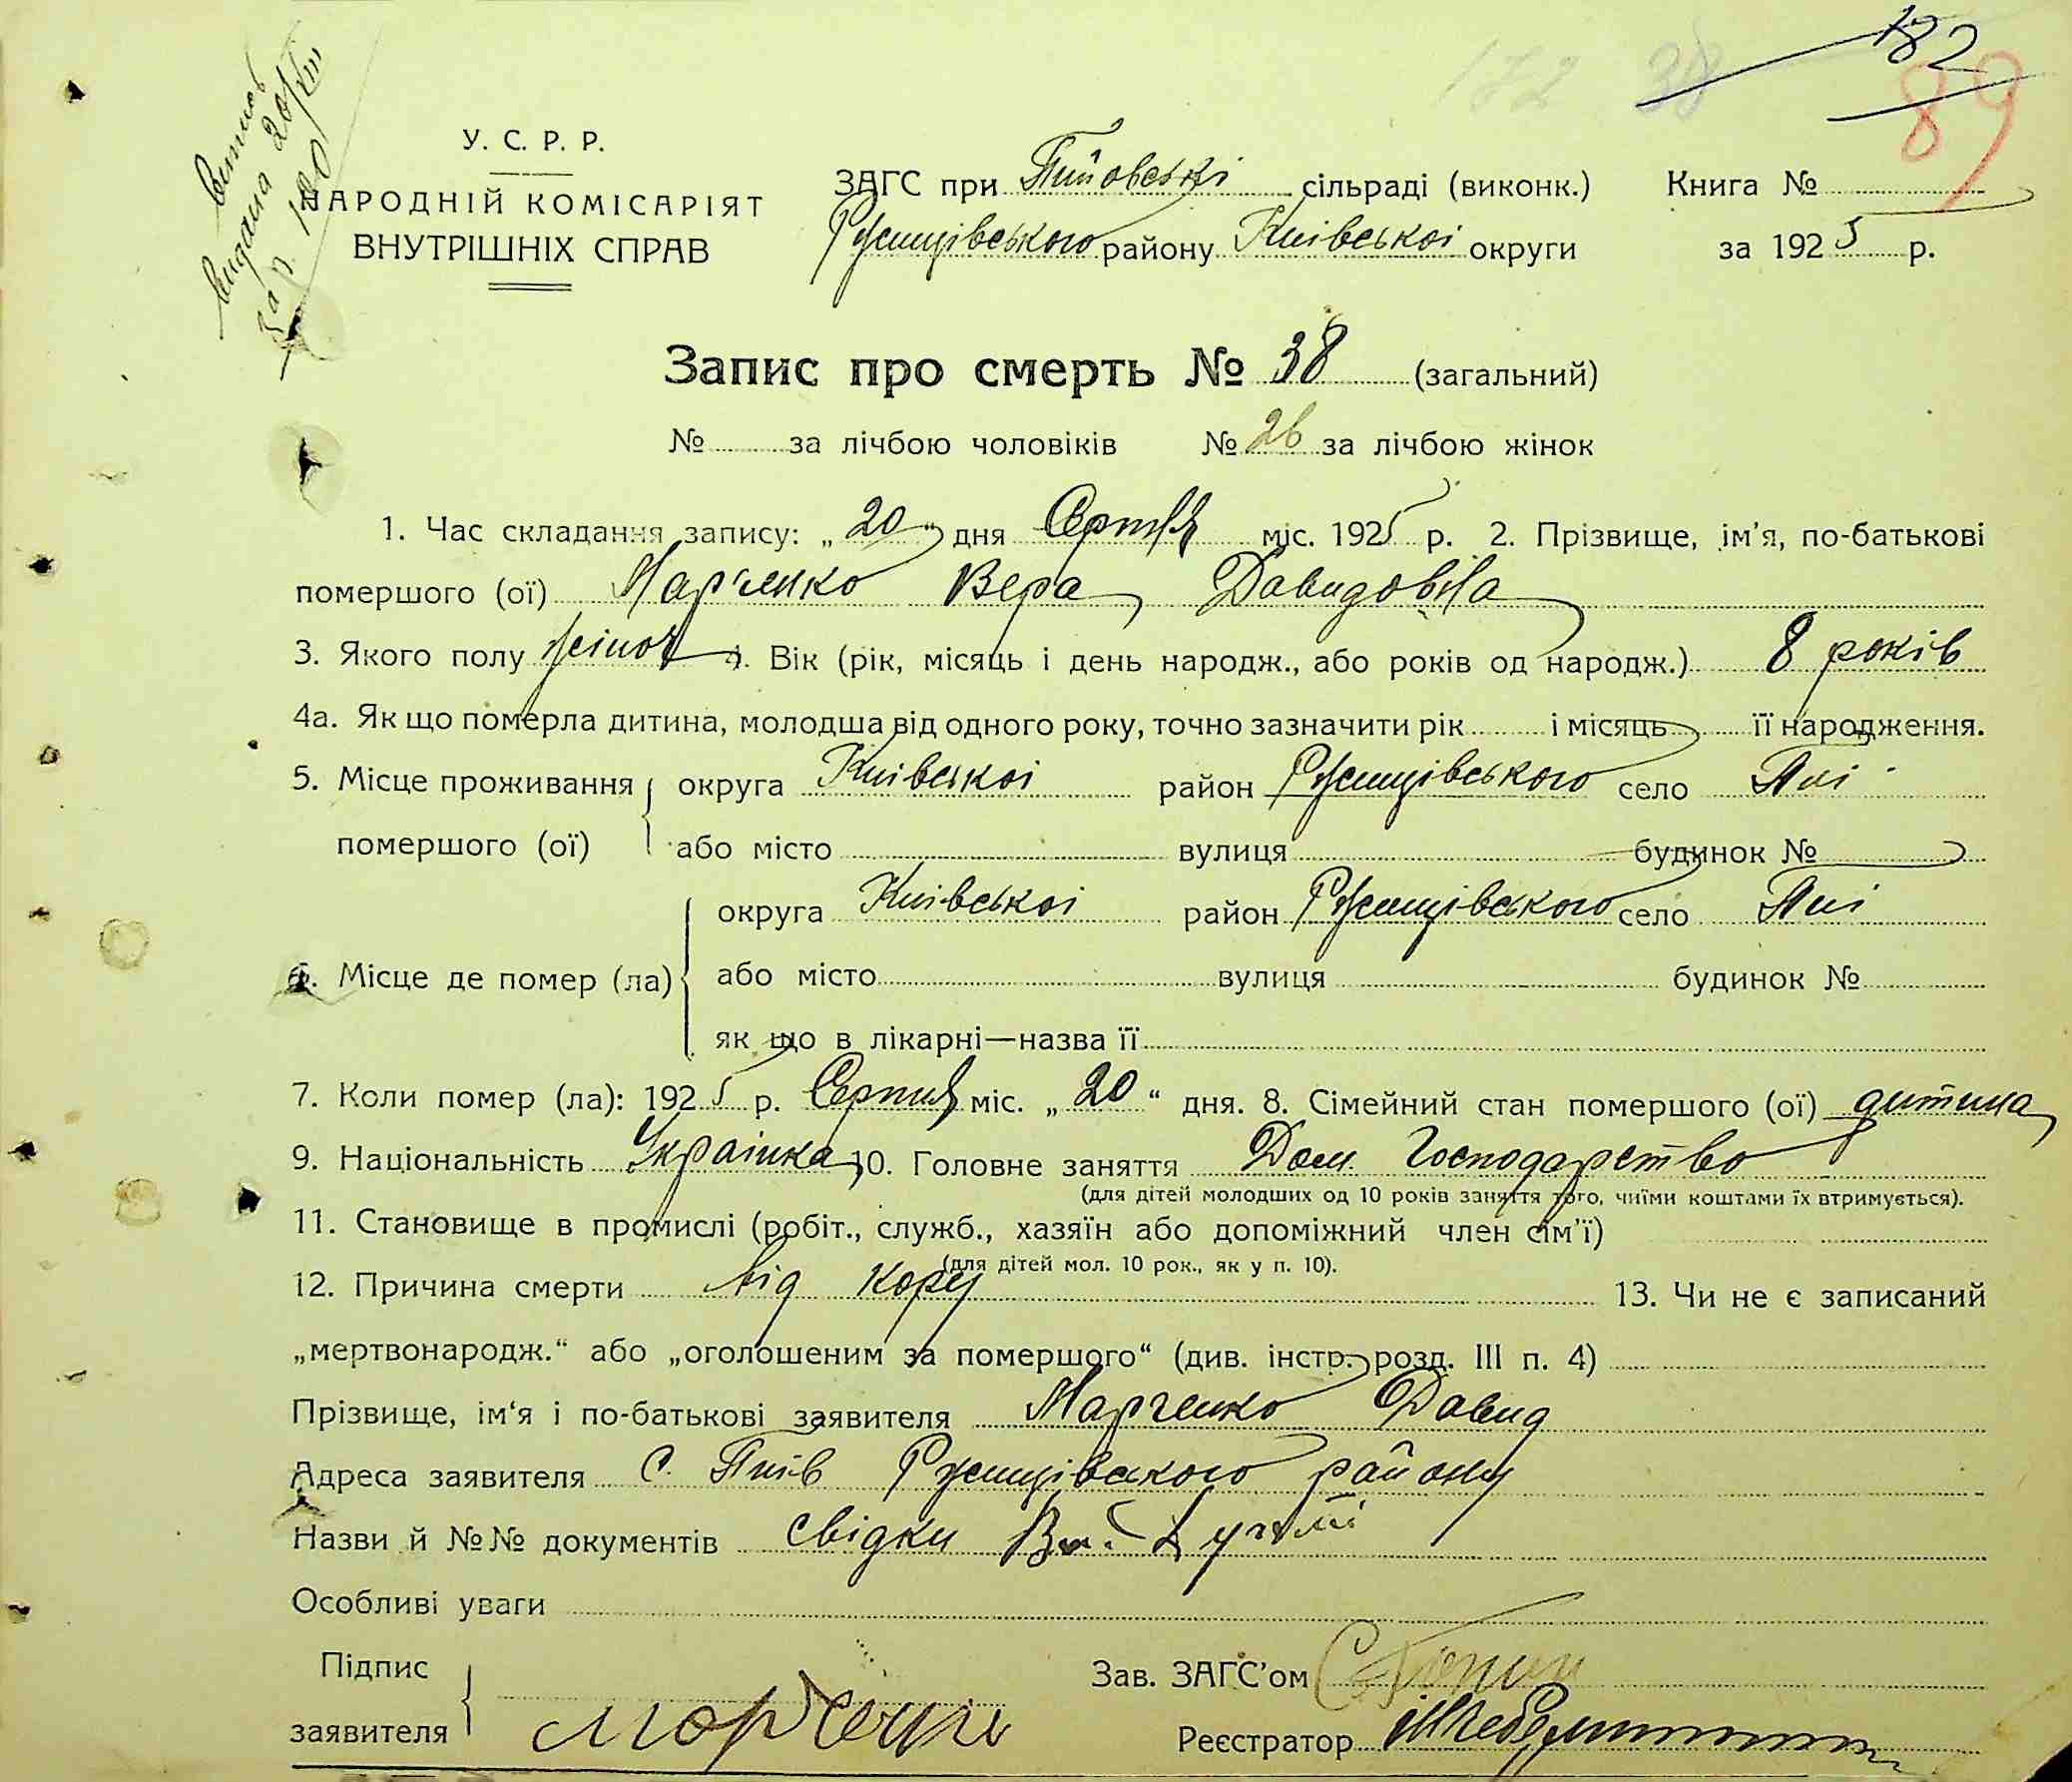 182
172 38 89
витяг
видана 20/VIII
за р. 180
У. С. Р. Р.
НАРОДНІЙ КОМІСАРІЯТ
ВНУТРІШНІХ СПРАВ
ЗАГС при сільраді (виконк.) Книга №
Ржищівського району Київської округи за 1925 р.
Запис про смерть № 38 (загальний)
№ за лічбою чоловіків № 26 за лічбою жінок
1. Час складання запису: „20“ дня Серпня міс. 1925 р. 2. Прізвище, ім'я, по-батькові
помершого (ої) Марченко Вера Давидовна
3. Якого полу жіноч 4. Вік (рік, місяць і день народж., або років од народж.) 8 років
4а. Як що померла дитина, молодша від одного року, точно зазначити рік і місяць її народження.
5. Місце проживання округа Київськоі район Ржищівського село
помершого (ої) або місто вулиця будинок №
округа Київськоі район Ржищівського село
6. Місце де помер (ла) або місто вулиця будинок №
як що в лікарні—назва її
7. Коли помер (ла): 1925 р. Серпня міс. „20“ дня. 8. Сімейний стан помершого (ої) дитина
9. Національність Украінка 10. Головне заняття Дом. Господарство
(для дітей молодших од 10 років заняття того, чиїми коштами їх втримується).
11. Становище в промислі (робіт., служб., хазяїн або допоміжний член сім'ї)
(для дітей мол. 10 рок., як у п. 10).
12. Причина смерти від кору 13. Чи не є записаний
„мертвонародж.“ або „оголошеним за помершого“ (див. інстр. розд. III п. 4)
Прізвище, ім'я і по-батькові заявителя Марченко Давид
Адреса заявителя с. Ржищівського району
Назви й №№ документів свідки
Особливі уваги
Підпис
заявителя
Зав. ЗАГС'ом
Реєстратор